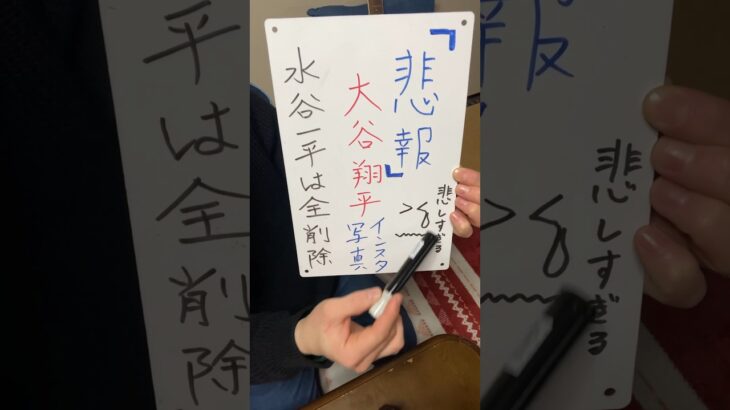 『悲報』
悲しすぎる
大谷翔平
インスタ
写真
水谷一平は全削除